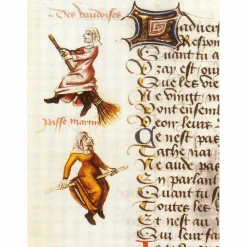 Des vaudoises
passe martin
L aduers
Respon
Quant tu a
Vray est ou
Que les vie
Ne vingt m
Vont ensem
Veoir leurs
Ce nest pas
Tache nar
Ne aude pas
En parlant
Quant tu
Toutes les
Et nest au
Sur leur fa